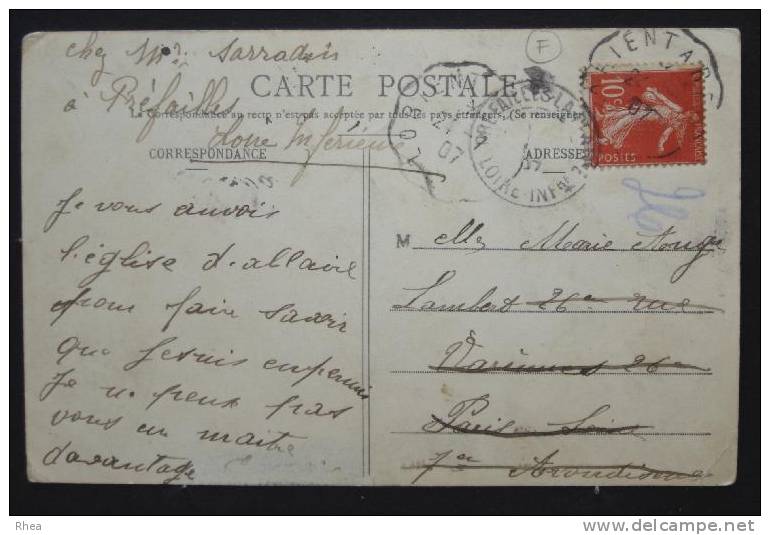 chez Mme Sarradin
à Préfailles
Loire Inférieure
CARTE POSTALE
La Correspondance au recto n'est pas acceptée par tous les pays étrangers, (Se renseigner
CORRESPONDANCE
ADRESSE
PREFAILLES-LA
LOIRE-INFRE
07
07
07
10c
POSTES
F
Je vous anvois
l'église d'allaire
pour fair savoir
que Jesuis enpermis
Je ne peux pas
vous en maitre
davantage
M elle Marie Rouge
Lambert 26 rue
Varennes 26
Paris Seine
7er Arondisme
Rhea
delcampe.net